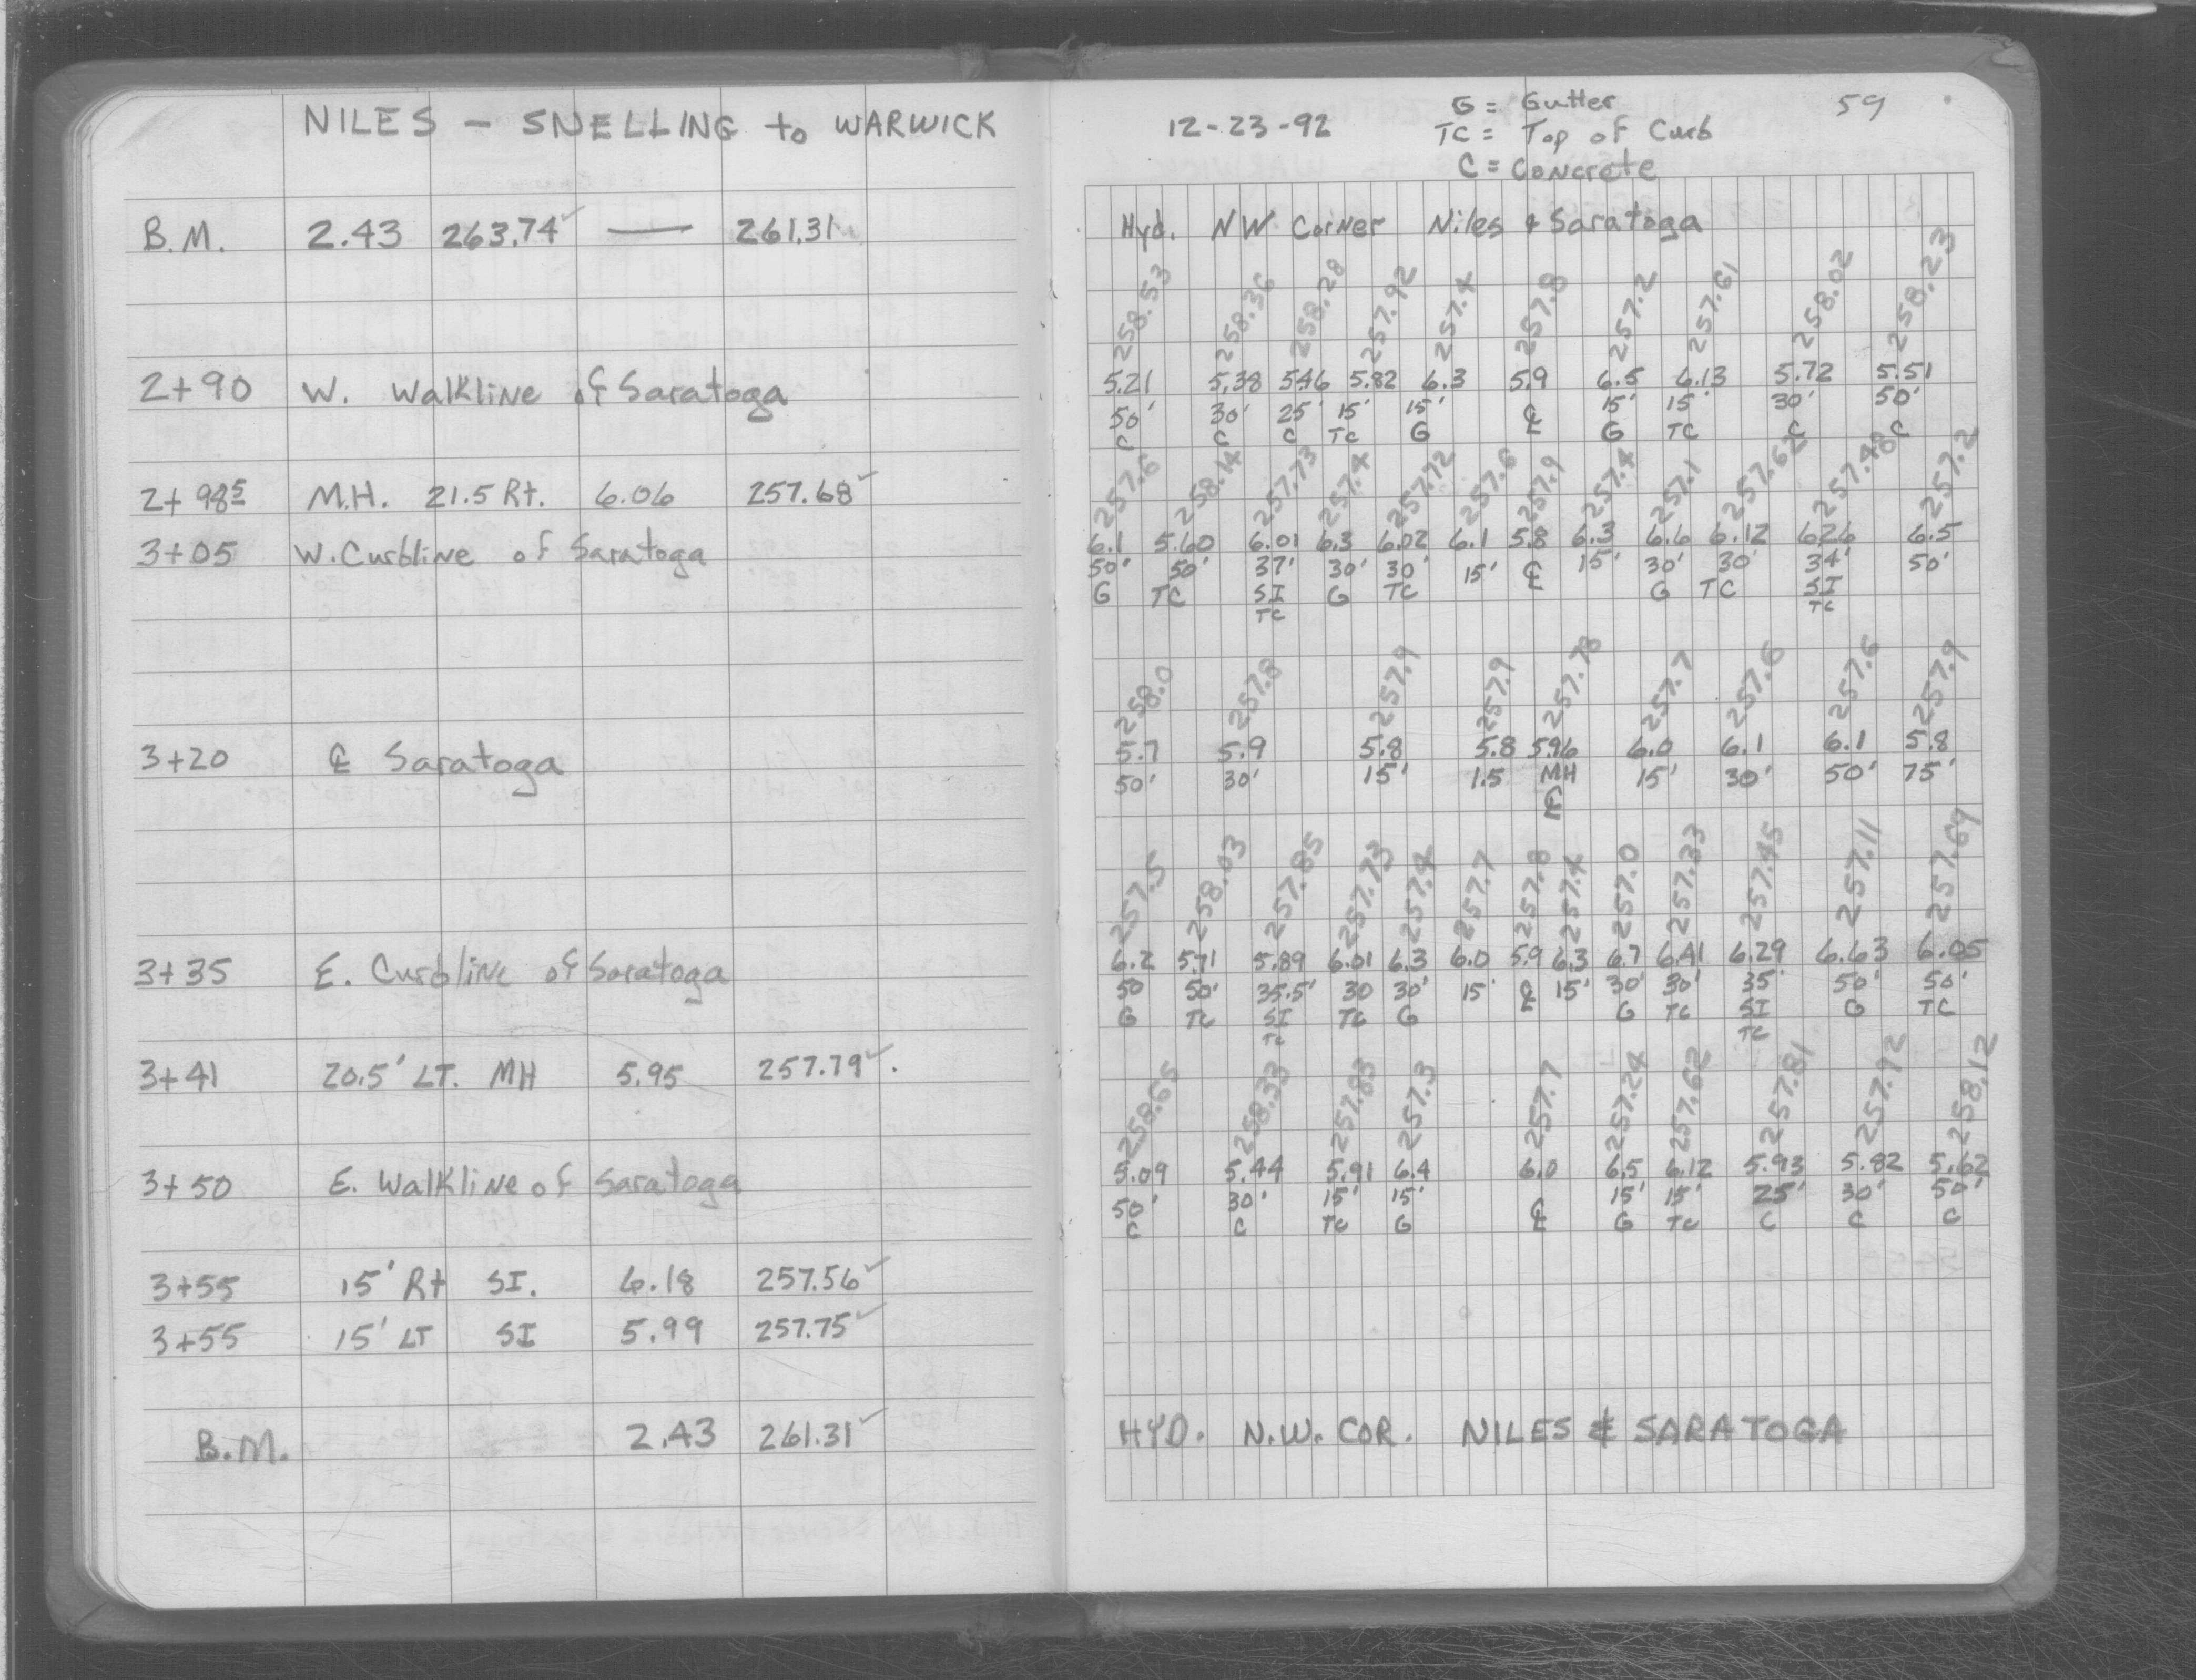 NILES - SNELLING to WARWICK
B.M. 2.43 263.74✓ — 261.31
2+90 W. Walkline of Saratoga
2+98⁵ M.H. 21.5 Rt. 6.06 257.68✓
3+05 W. Curbline of Saratoga
3+20 ℄ Saratoga
3+35 E. Curbline of Saratoga
3+41 20.5' LT. MH 5.95 257.79✓.
3+50 E. Walkline of Saratoga
3+55 15' Rt SI. 6.18 257.56✓
3+55 15' LT SI 5.99 257.75✓
B.M. 2.43 261.31✓
12-23-92
G = Gutter
TC = Top of Curb
C = Concrete
59
Hyd. NW Corner Niles & Saratoga
258.53 258.36 258.28 257.92 257.4 257.8 257.2 257.61 258.02 258.23
5.21 5.38 5.46 5.82 6.3 5.9 6.5 6.13 5.72 5.51
50' 30' 25' 15' 15' ℄ 15' 15' 30' 50'
C C C TC G G TC C C
257.6 258.14 257.73 257.4 257.72 257.6 257.9 257.4 257.1 257.62 257.48 257.2
6.1 5.60 6.01 6.3 6.02 6.1 5.8 6.3 6.6 6.12 6.26 6.5
50' 50' 37' 30' 30' 15' ℄ 15' 30' 30' 34' 50'
G TC SI G TC G TC SI
TC TC
258.0 257.8 257.9 257.9 257.78 257.7 257.6 257.6 257.9
5.7 5.9 5.8 5.8 5.96 6.0 6.1 6.1 5.8
50' 30' 15' 1.5 MH 15' 30' 50' 75'
℄
257.5 258.03 257.85 257.73 257.4 257.7 257.8 257.4 257.0 257.33 257.45 257.11 257.69
6.2 5.71 5.89 6.01 6.3 6.0 5.9 6.3 6.7 6.41 6.29 6.63 6.05
50 50' 35.5' 30 30' 15' ℄ 15' 30' 30' 35' 50' 50'
G TC SI TC G G TC SI G TC
TC TC
258.65 258.33 257.83 257.3 257.7 257.24 257.62 257.81 257.92 258.12
5.09 5.44 5.91 6.4 6.0 6.5 6.12 5.93 5.82 5.62
50' 30' 15' 15' ℄ 15' 15' 25' 30' 50'
C C TC G G TC C C C
HYD. N.W. COR. NILES & SARATOGA